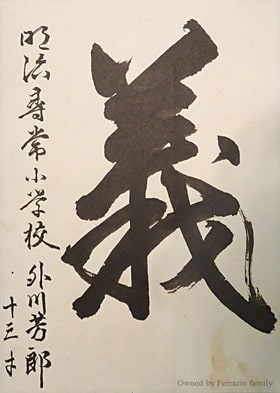 義
明治尋常小学校 外川芳郎
十三才
Owned by Ferrarin family